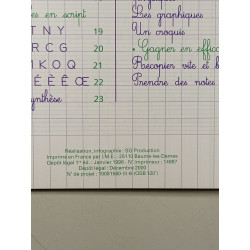 es en script
T N Y 19
R C G 20
K O Q 21
É È Ê Œ 22
ynthèse 23
Les graphiques
Un croquis
• Gagner en effica
Recopier vite et b
Prendre des notes
Réalisation, infographie : SG Production
Imprimé en France par I.M.E. - 25110 Baume-les-Dames
Dépôt légal 1re éd. : Janvier 1998 - N° imprimeur : 14887
Dépôt légal : Décembre 2000